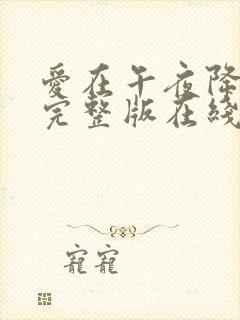 爱在午夜降
完整版在綫
寵寵